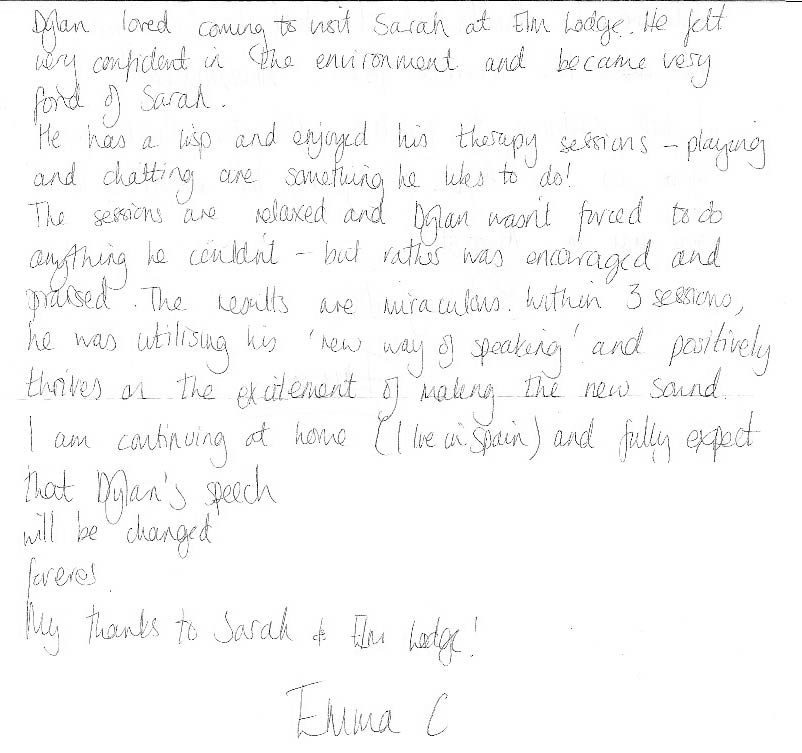 Dylan loved coming to visit Sarah at Elm Lodge. He felt
very confident in the environment and became very
fond of Sarah.
He has a lisp and enjoyed his therapy sessions - playing
and chatting are something he likes to do!
The sessions are relaxed and Dylan wasn't forced to do
anything he couldn't - but rather was encouraged and
praised. The results are miraculous. Within 3 sessions,
he was utilising his 'new way of speaking' and positively
thrives on the excitement of making the new sound.
I am continuing at home (I live in Spain) and fully expect
that Dylan's speech
will be changed
forever!
My thanks to Sarah & Elm Lodge!
Emma C